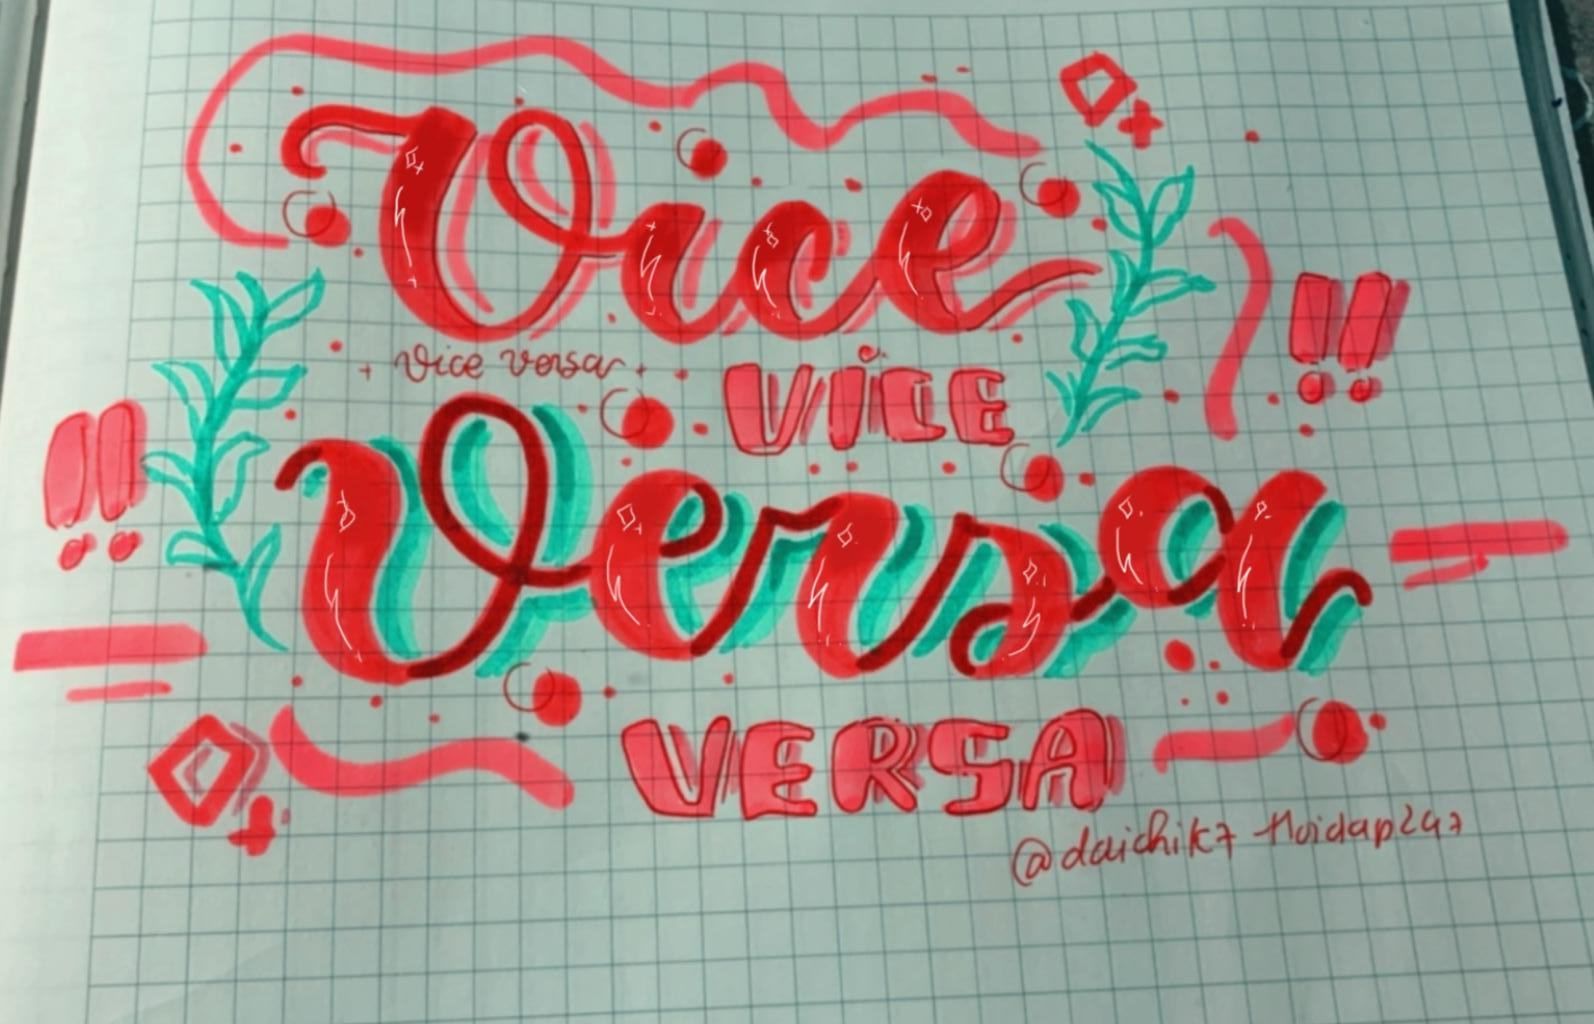 Vice
!!
vice versa
VICE
!!
Versa
VERSA
@daichik7 Hoidap247